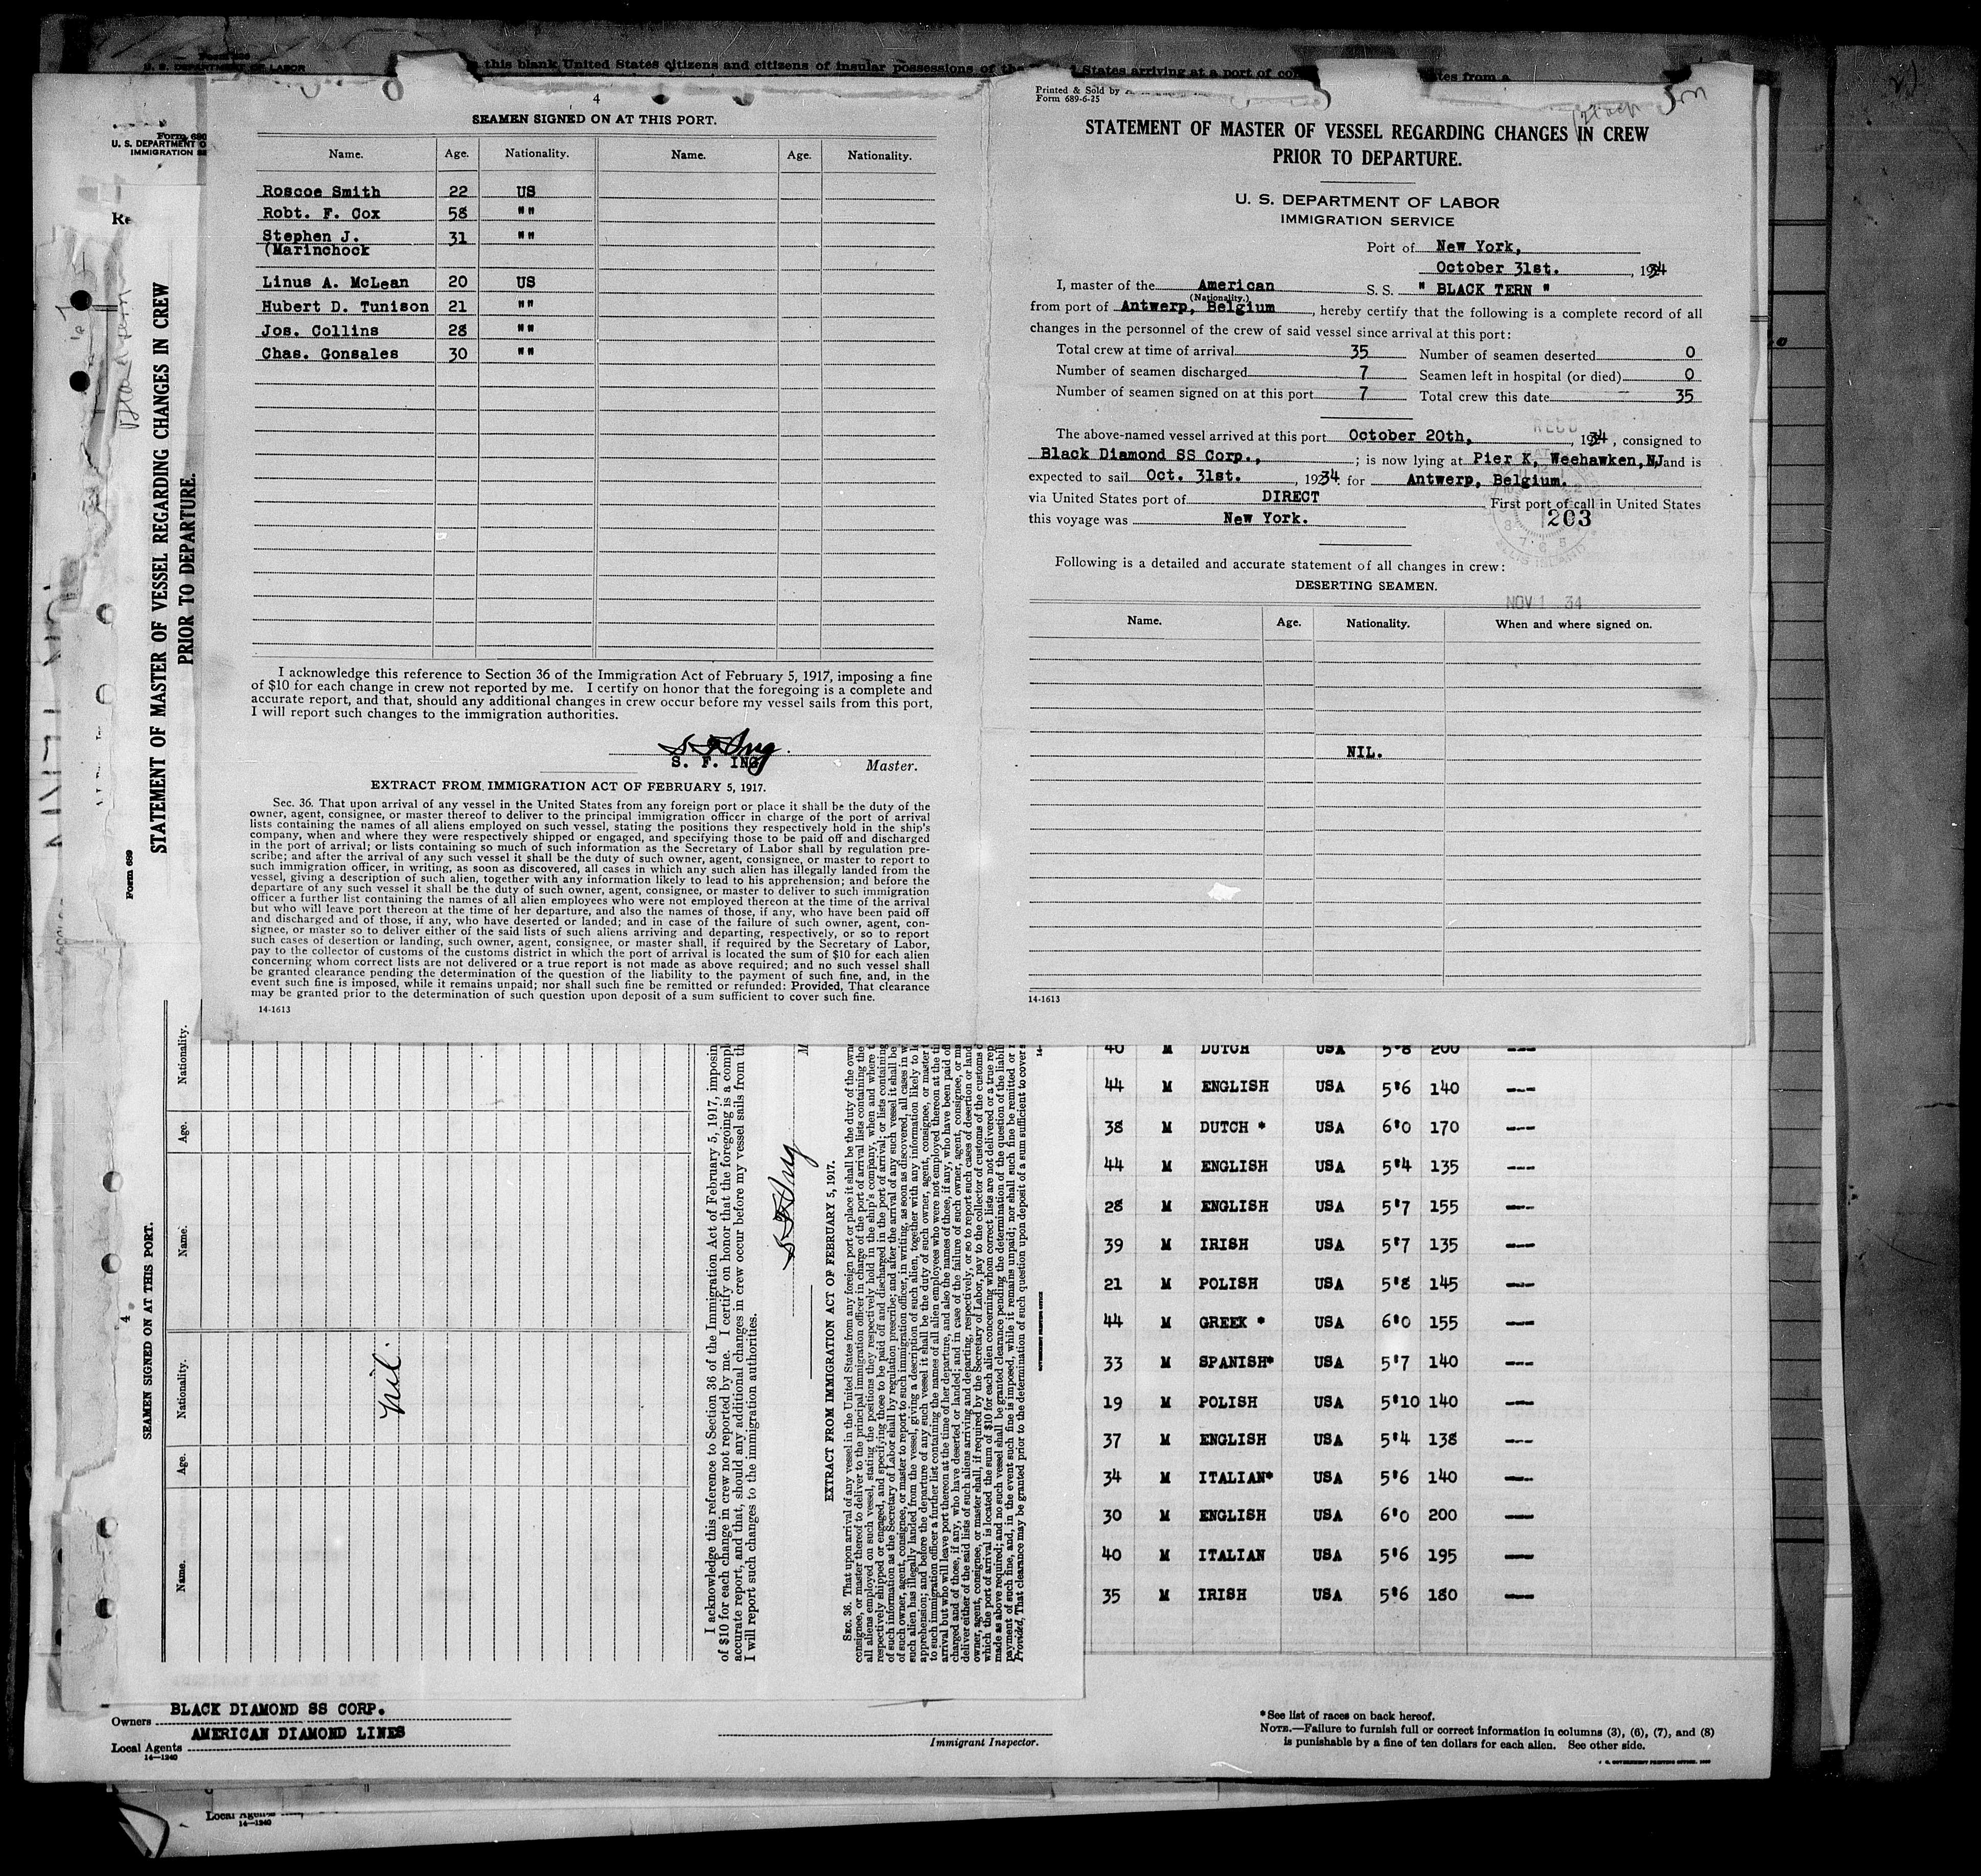 Form 689
U. S. DEPARTMENT OF LABOR
this blank United States citizens and citizens of insular possessions of the
States arriving at a port of
tes from a
4
SEAMEN SIGNED ON AT THIS PORT.
Name. Age. Nationality. Name. Age. Nationality.
Roscoe Smith 22 US
Robt. F. Cox 58 " "
Stephen J. 31 " "
(Marinchock
Linus A. McLean 20 US
Hubert D. Tunison 21 " "
Jos. Collins 28 " "
Chas. Gonsales 30 " "
I acknowledge this reference to Section 36 of the Immigration Act of February 5, 1917, imposing a fine
of $10 for each change in crew not reported by me. I certify on honor that the foregoing is a complete and
accurate report, and that, should any additional changes in crew occur before my vessel sails from this port,
I will report such changes to the immigration authorities.
S F Ing.
S. F. ING Master.
EXTRACT FROM IMMIGRATION ACT OF FEBRUARY 5, 1917.
Sec. 36. That upon arrival of any vessel in the United States from any foreign port or place it shall be the duty of the
owner, agent, consignee, or master thereof to deliver to the principal immigration officer in charge of the port of arrival
lists containing the names of all aliens employed on such vessel, stating the positions they respectively hold in the ship's
company, when and where they were respectively shipped or engaged, and specifying those to be paid off and discharged
in the port of arrival; or lists containing so much of such information as the Secretary of Labor shall by regulation pre-
scribe; and after the arrival of any such vessel it shall be the duty of such owner, agent, consignee, or master to report to
such immigration officer, in writing, as soon as discovered, all cases in which any such alien has illegally landed from the
vessel, giving a description of such alien, together with any information likely to lead to his apprehension; and before the
departure of any such vessel it shall be the duty of such owner, agent, consignee, or master to deliver to such immigration
officer a further list containing the names of all alien employees who were not employed thereon at the time of the arrival
but who will leave port thereon at the time of her departure, and also the names of those, if any, who have been paid off
and discharged and of those, if any, who have deserted or landed; and in case of the failure of such owner, agent, con-
signee, or master so to deliver either of the said lists of such aliens arriving and departing, respectively, or so to report
such cases of desertion or landing, such owner, agent, consignee, or master shall, if required by the Secretary of Labor,
pay to the collector of customs of the customs district in which the port of arrival is located the sum of $10 for each alien
concerning whom correct lists are not delivered or a true report is not made as above required; and no such vessel shall
be granted clearance pending the determination of the question of the liability to the payment of such fine, and, in the
event such fine is imposed, while it remains unpaid; nor shall such fine be remitted or refunded: Provided, That clearance
may be granted prior to the determination of such question upon deposit of a sum sufficient to cover such fine.
14-1613
Printed & Sold by
Form 689-6-25
STATEMENT OF MASTER OF VESSEL REGARDING CHANGES IN CREW
PRIOR TO DEPARTURE.
U. S. DEPARTMENT OF LABOR
IMMIGRATION SERVICE
Port of New York,
October 31st. , 1934
I, master of the American S. S. " BLACK TERN "
(Nationality.)
from port of Antwerp, Belgium , hereby certify that the following is a complete record of all
changes in the personnel of the crew of said vessel since arrival at this port:
Total crew at time of arrival 35 Number of seamen deserted 0
Number of seamen discharged 7 Seamen left in hospital (or died) 0
Number of seamen signed on at this port 7 Total crew this date 35
The above-named vessel arrived at this port October 20th, , 1934 , consigned to
Black Diamond SS Corp., ; is now lying at Pier K, Weehawken,NJ and is
expected to sail Oct. 31st. , 1934. for Antwerp, Belgium.
via United States port of DIRECT First port of call in United States
this voyage was New York. 203
Following is a detailed and accurate statement of all changes in crew:
DESERTING SEAMEN.
NOV 1 34
Name. Age. Nationality. When and where signed on.
NIL.
14-1613
Form 689
STATEMENT OF MASTER OF VESSEL REGARDING CHANGES IN CREW
PRIOR TO DEPARTURE.
4
SEAMEN SIGNED ON AT THIS PORT.
Name. Age. Nationality. Name. Age. Nationality.
nil.
I acknowledge this reference to Section 36 of the Immigration Act of February 5, 1917, imposin
of $10 for each change in crew not reported by me. I certify on honor that the foregoing is a compl
accurate report, and that, should any additional changes in crew occur before my vessel sails from th
I will report such changes to the immigration authorities.
S F Ing
EXTRACT FROM IMMIGRATION ACT OF FEBRUARY 5, 1917.
40 M DUTCH USA 5'8 200 ---
44 M ENGLISH USA 5'6 140 ---
38 M DUTCH * USA 6'0 170 ---
44 M ENGLISH USA 5'4 135 ---
28 M ENGLISH USA 5'7 155 ---
39 M IRISH USA 5'7 135 ---
21 M POLISH USA 5'8 145 ---
44 M GREEK * USA 6'0 155 ---
33 M SPANISH* USA 5'7 140 ---
19 M POLISH USA 5'10 140 ---
37 M ENGLISH USA 5'4 138 ---
34 M ITALIAN* USA 5'6 140 ---
30 M ENGLISH USA 6'0 200 ---
40 M ITALIAN USA 5'6 195 ---
35 M IRISH USA 5'6 180 ---
Owners BLACK DIAMOND SS CORP.
Local Agents AMERICAN DIAMOND LINES
14-1240
Immigrant Inspector.
*See list of races on back hereof.
NOTE.—Failure to furnish full or correct information in columns (3), (6), (7), and (8)
is punishable by a fine of ten dollars for each alien. See other side.
Local Agents
14-1240